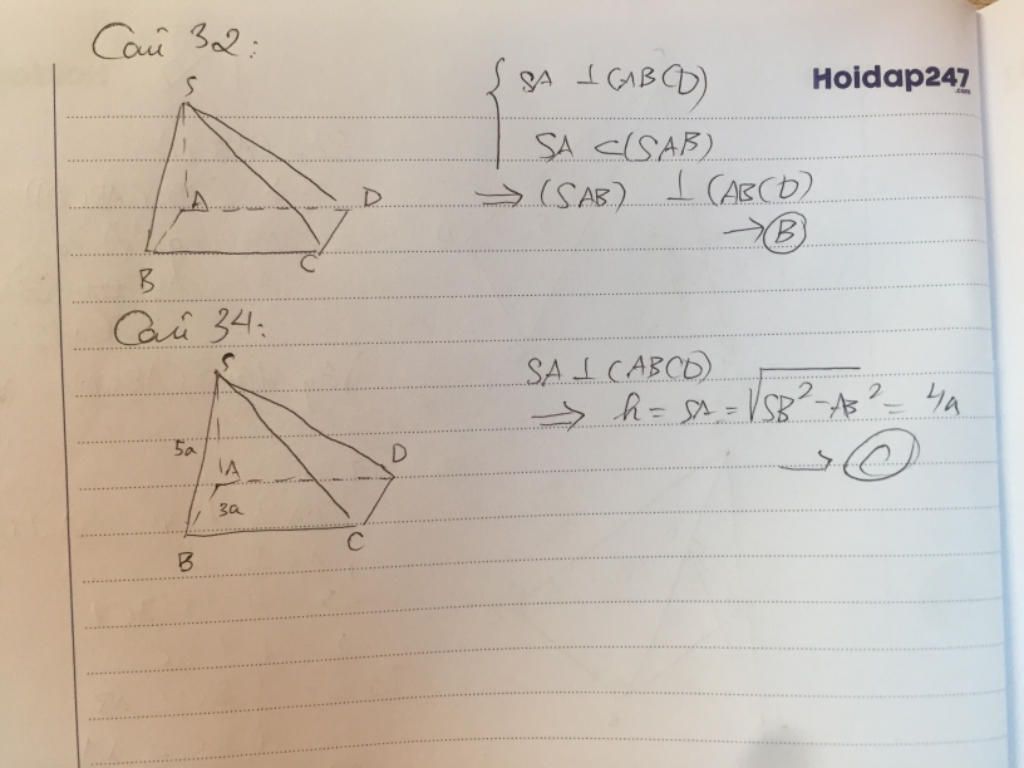 Câu 32:
S
A
D
B
C
SA ⊥ (ABCD)
SA ⊂ (SAB)
⇒ (SAB) ⊥ (ABCD)
→ B
Hoidap247
.com
Câu 34:
S
5a
A
D
3a
B
C
SA ⊥ (ABCD)
⇒ h = SA = √SB² - AB² = 4a
→ C